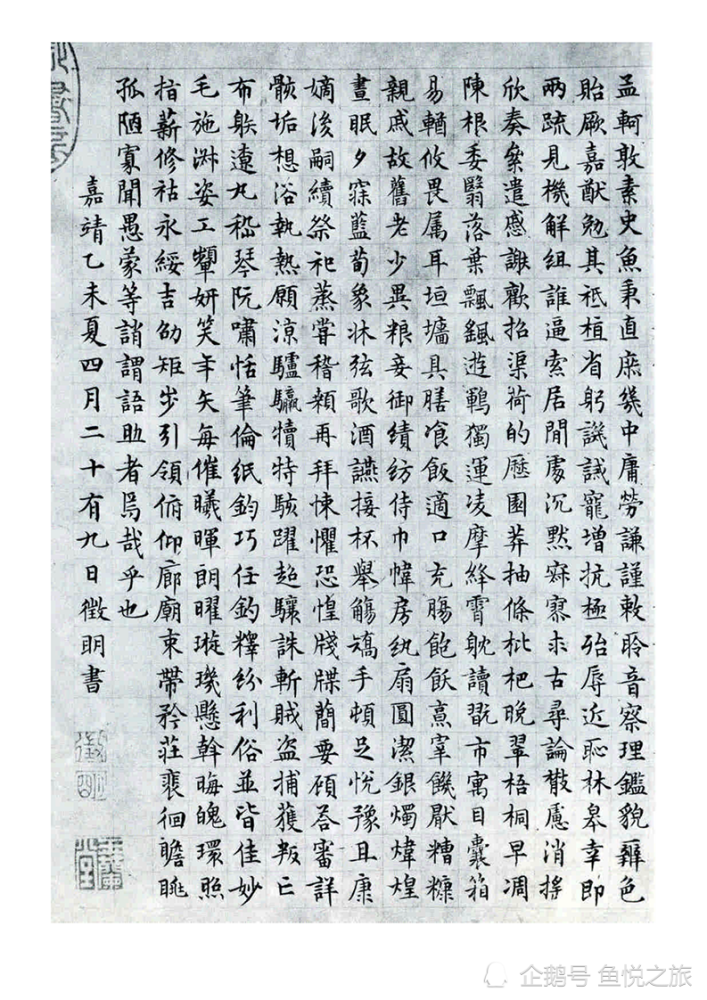 孟軻敦素史魚秉直庶幾中庸勞謙謹敕聆音察理鑑貌辨色
貽厥嘉猷勉其祗植省躬譏誡寵增抗極殆辱近恥林皋幸即
兩疏見機解組誰逼索居閒處沉默寂寥求古尋論散慮消搖
欣奏累遣慼謝歡招渠荷的歷園莽抽條枇杷晚翠梧桐早凋
陳根委翳落葉飄颻遊鵾獨運凌摩絳霄耽讀翫市寓目囊箱
易輶攸畏属耳垣墻具膳飡飯適口充腸飽飫烹宰饑厭糟糠
親戚故舊老少異粮妾御績紡侍巾帷房紈扇圓潔銀燭煒煌
晝眠夕寐藍筍象牀弦歌酒讌接杯舉觴矯手頓足悅豫且康
嫡後嗣續祭祀蒸嘗稽顙再拜悚懼恐惶牋牒簡要顧荅審詳
骸垢想浴執熱願涼驢騾犢特駭躍超驤誅斬賊盗捕獲叛亡
布射遼丸嵇琴阮嘯恬筆倫紙鈞巧任釣釋紛利俗並皆佳妙
毛施淑姿工顰妍笑年矢每催曦暉朗曜璇璣懸斡晦魄環照
指薪修祜永綏吉劭矩步引領俯仰廊廟束帶矜莊裴徊瞻眺
孤陋寡聞愚蒙等誚謂語助者焉哉乎也
嘉靖乙未夏四月二十有九日徵明書
徵明
玉蘭堂
企鹅号 鱼悦之旅